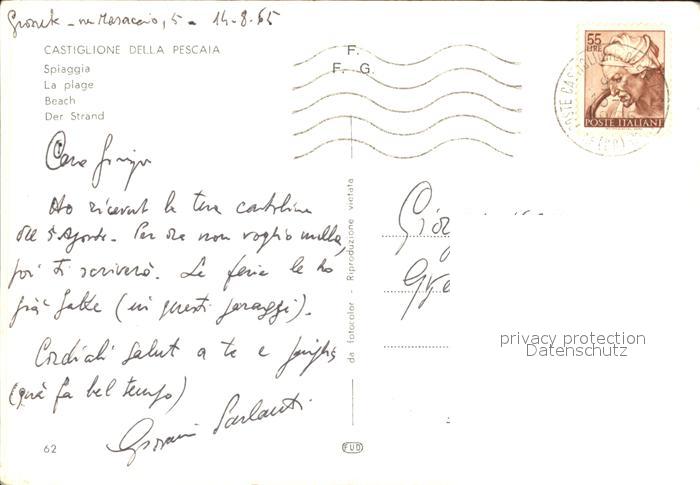 via Masaccio, 5 - 14-8-65
CASTIGLIONE DELLA PESCAIA
Spiaggia
La plage
Beach
Der Strand
F.
F. G.
55
LIRE
POSTE ITALIANE
Caro
Ho ricevuto la tua cartolina
del 5 Agosto. Per ora non voglio nulla,
poi ti scriverò. Le ferie le ho
già fatte (in questi paraggi).
Cordiali saluti a te e famiglia
(qui fa bel tempo)
Giovanni Parlanti
da fotocolor - Riproduzione vietata
privacy protection
Datenschutz
62
FUD